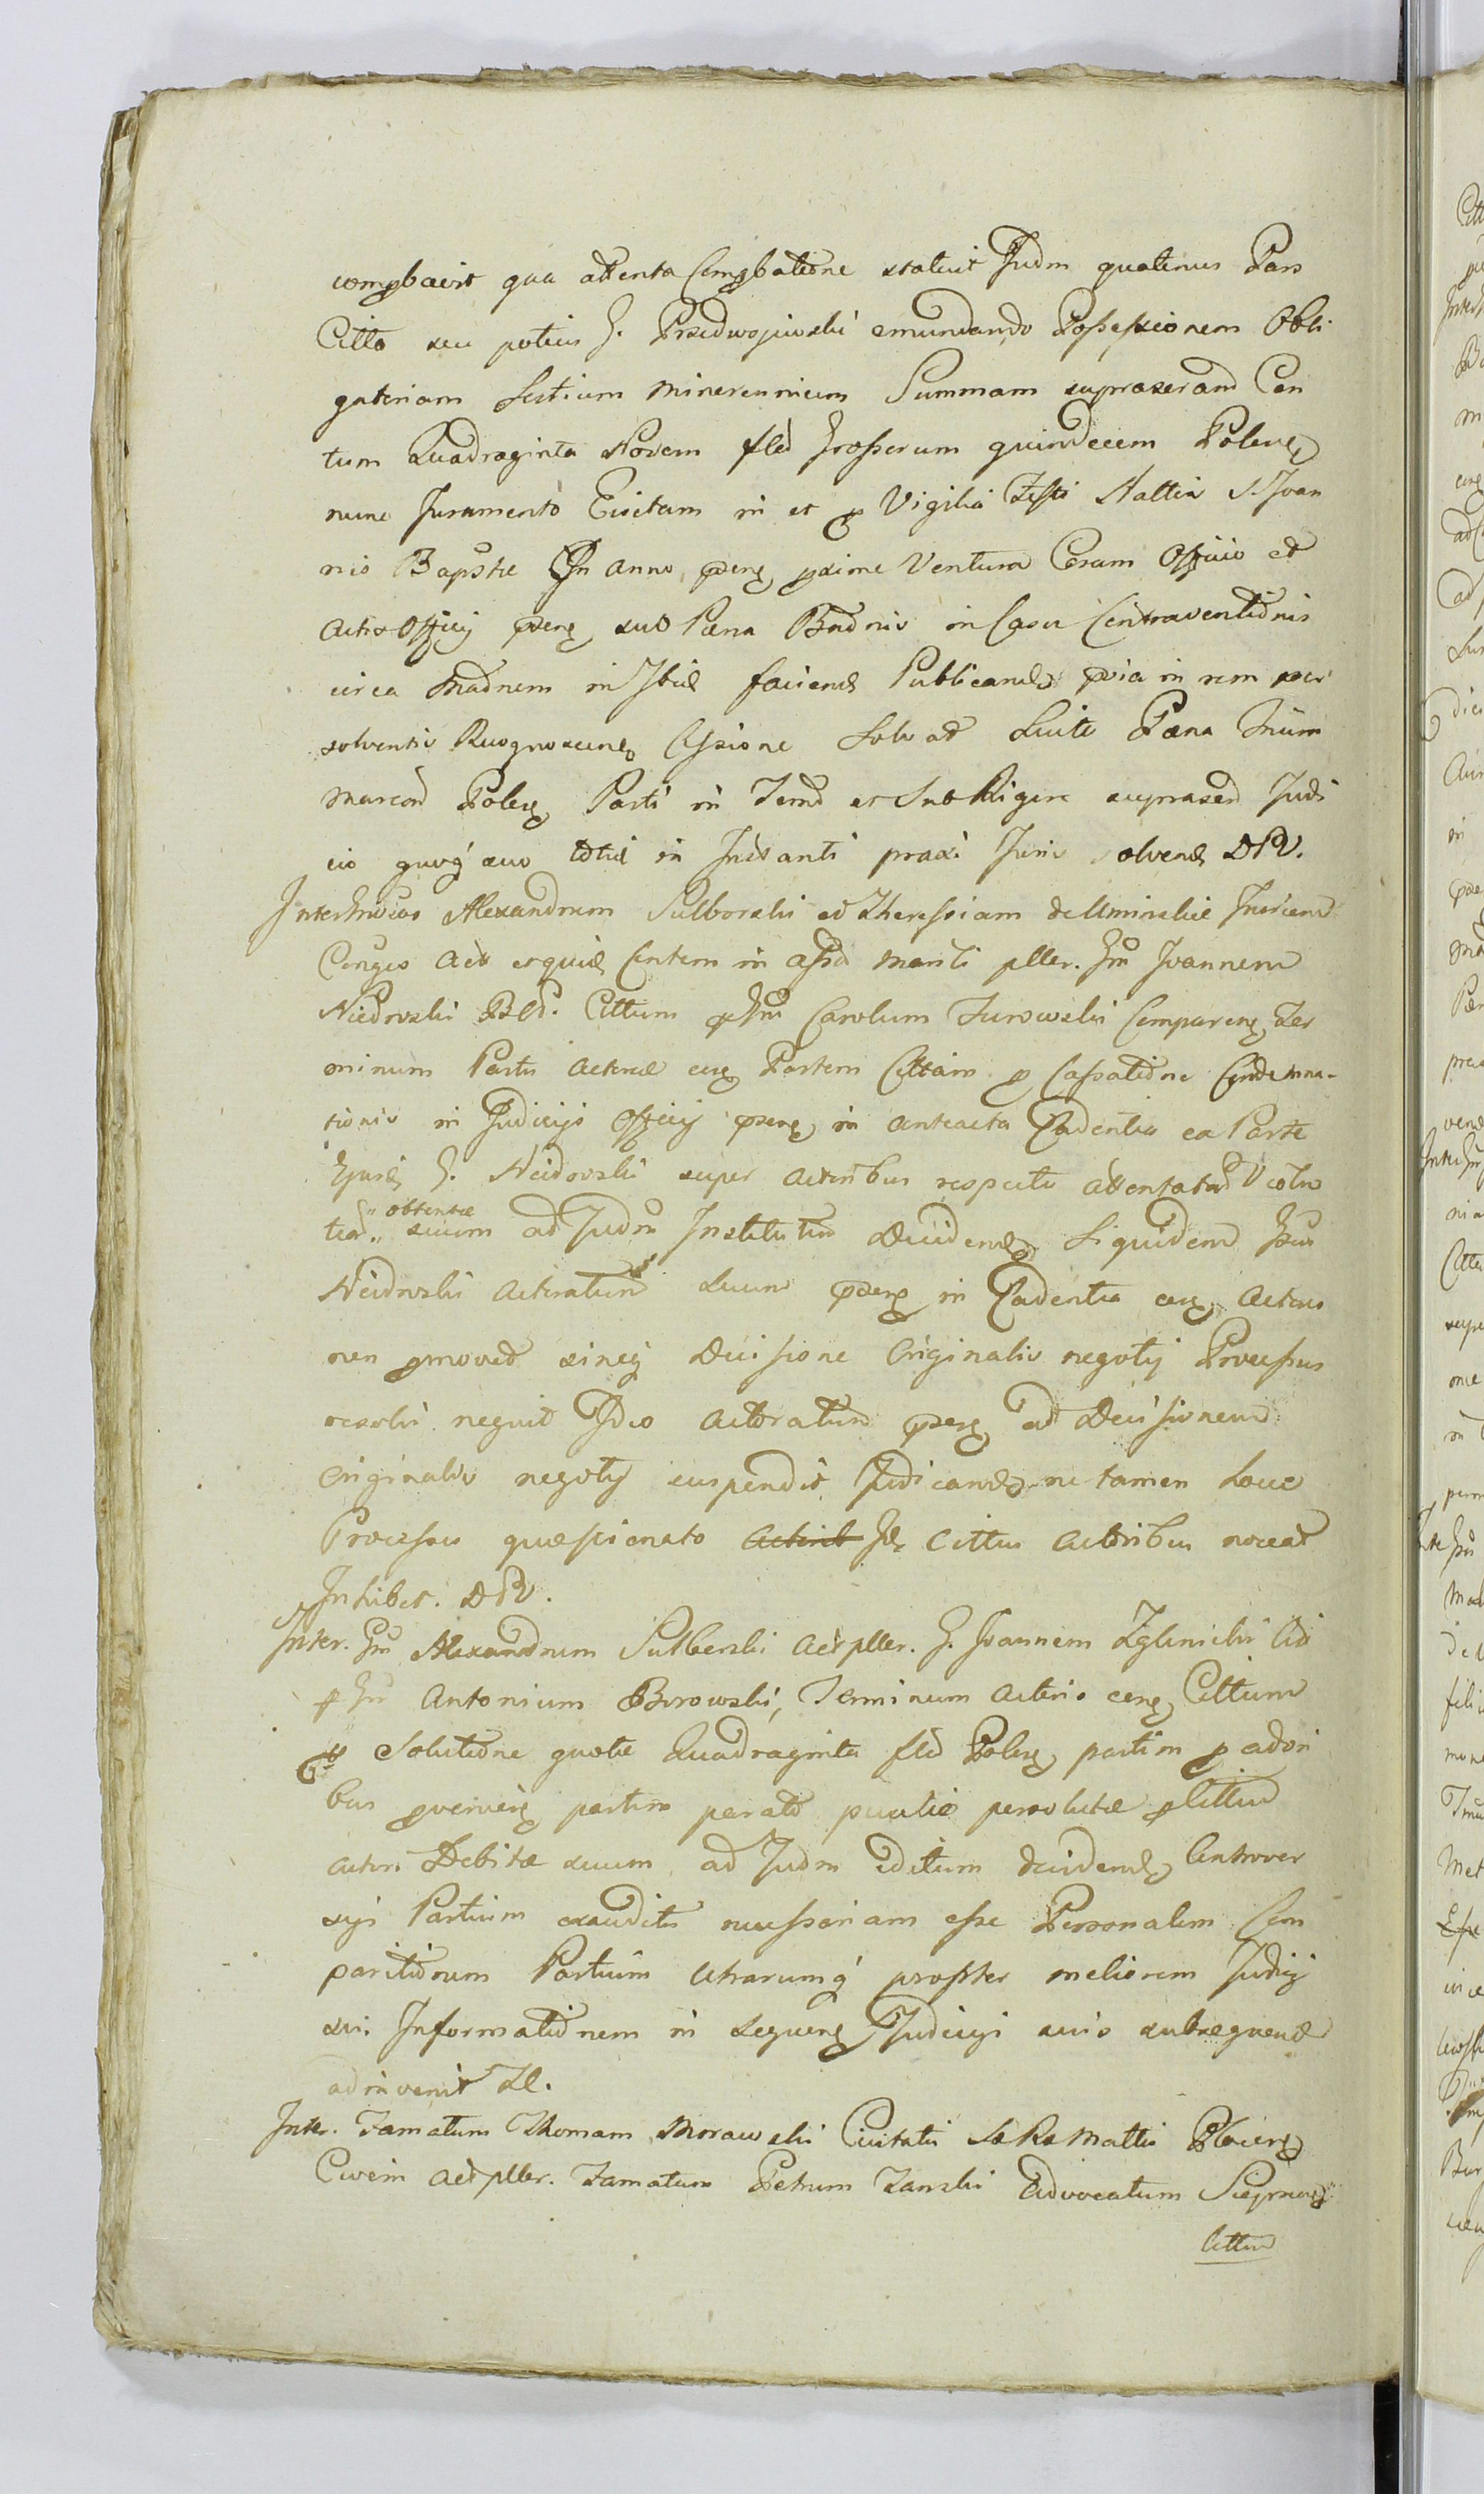 comprobavit qua attenta Comprobatione statuit Judm quatenus Pars
Citta seu potius G. Przedwojewski emundando Possessionem Obli
gatoriam Sestium minorennium Summam supraseram Cen
tum Quadraginta Novem flo Grossorum quindecem Polen
nunc Juramento Evictam in et pro Vigilia Festi Nattis S Joan
nis Baptstae In anno psens proxime Venturo Coram Officio et
actis Officij psens sub Paena Bndnis in Casu Contraventionis
circa Madnem in Jbid faciend Publicand pvia in rem per
solventis Recognoscend Cessione Solvat Luito Paena Trium
marcar Polen Parti in Termo et Sub Rigore suprased Judi
cio quoq suo toties in Instanti praxi Juris solvend DPV.
Inter Gnosos Alexandrum Sulborski et Theressiam de Uminskie Gnorum
Conges Act et quid Contem in assa mariti pller. Gm Joannem
Niedroski Bld. Cittum p Gm Carolum Turowski Comparen Ter
minum Partis actoreae cum Partem Cittam pro Cassatione Condemna-
tionis in Judicijs Officij psens in anteacta Cadentia ex Parte
Ejusd G. Neidroski super actoribus respectu attentatar Violen
tiar" obtentae suum ad Judm Institutum Decidend Siquidem Gsus
Neidroski actoratum suum psens in Cadentia cum actores
non promovet sineq Decisione Originalis negotij Processus
resolvi nequit Ideo actoratum psens ad Decisionem
Originalis negotij suspendit Judicand ne tamen Loco
Processu quaestionato Actorib Gs Cittus actoribus noceat
Inhibet. DPV.
Inter. Gm Alexandrum Sulborski act pller. G. Joannem Zglinicki Citt
p Gm Antonium Borowski, Terminum actoris cum Cittum
pro Solutione quotae Quadraginta flo Polen partim pro ador
bus provenien partim parata pecunia persolutae p Cittum
actori Debitae suum ad Judm editum decidend Controver
sijs Partium exauditis necessariam esse Personalem Com
paritionem Partium Utrarumq propter meliorem Judicij
sui Informationem in sequen Judicijs suis subsequend
adinvenit Il.
Inter. Famatum Thomam Morawski Civitatis Sae Rae Mattis Plocen
Civem act pller. Famatum Petrum Lanski Advocatum Sieprcen
Cittum